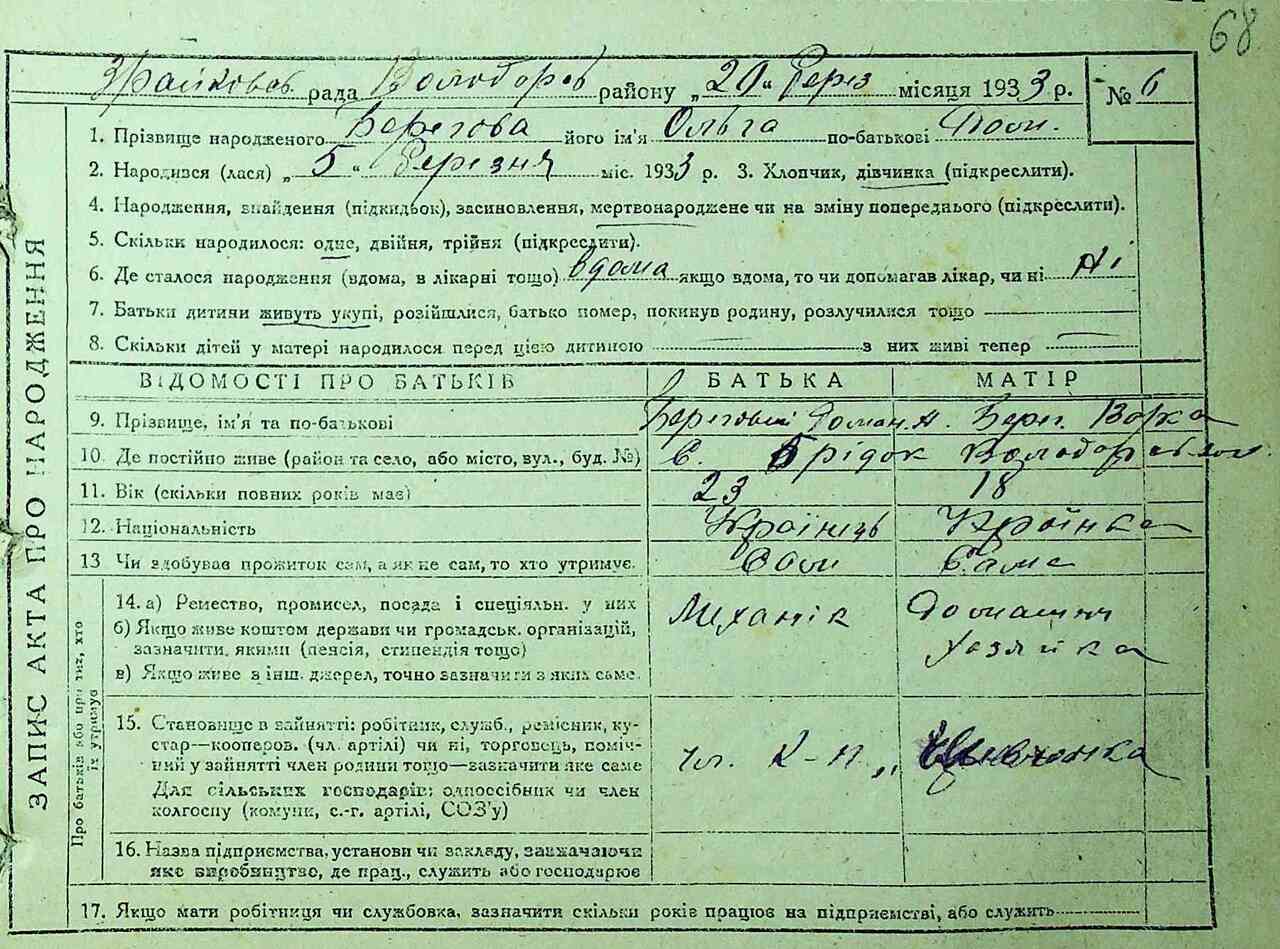 68
рада Володарев району „20“ берез місяця 1933 р. № 6
1. Прізвище народженого Берегова його ім'я Ольга по-батькові Дом.
2. Народився (лася) „5“ березня міс. 1933 р. 3. Хлопчик, дівчинка (підкреслити).
4. Народження, знайдення (підкидьок), засиновлення, мертвонароджене чи на зміну попереднього (підкреслити).
5. Скільки народилося: одне, двійня, трійня (підкреслити).
6. Де сталося народження (вдома, в лікарні тощо) вдома якщо вдома, то чи допомагав лікар, чи ні ні
7. Батьки дитини живуть укупі, розійшлися, батько помер, покинув родину, розлучилися тощо
8. Скільки дітей у матері народилося перед цією дитиною — з них живі тепер —
ВІДОМОСТІ ПРО БАТЬКІВ БАТЬКА МАТІР
9. Прізвище, ім'я та по-батькові Береговий Доман. А. Берег. Варка
10. Де постійно живе (район та село, або місто, вул., буд. №) С.
11. Вік (скільки повних років має) 23 18
12. Національність Українець Українка
13 Чи здобував прожиток сам, а як не сам, то хто утримує. Сам Сама
14. а) Ремество, промисел, посада і спеціяльн. у них Механік Домашня
б) Якщо живе коштом держави чи громадськ. організацій, хазяйка
зазначити, якими (пенсія, стипендія тощо)
в) Якщо живе з інш. джерел, точно зазначити з яких саме.
15. Становище в зайнятті: робітник, служб., ремісник, ку-
стар—кооперов. (чл. артілі) чи ні, торговець, поміч-
ний у зайнятті член родини тощо—зазначити яке саме чл. к-п „
Для сільських господарів: одноосібник чи член
колгоспу (комуни, с.-г. артілі, СОЗ'у)
16. Назва підприємства, установи чи закладу, зазначаючи
яке виробництво, де прац., служить або господарює
17. Якщо мати робітниця чи службовка, зазначити скільки років працює на підприємстві, або служить
ЗАПИС АКТА ПРО НАРОДЖЕННЯ
Про батьків або про тих, хто
їх утримує